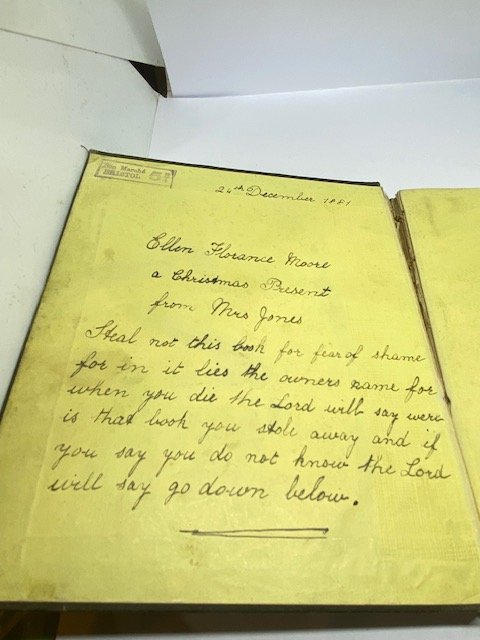 Bon Marché
BRISTOL
24th December 1881
Ellen Florance Moore
a Christmas Present
from Mrs Jones
Steal not this book for fear of shame
for in it lies the owners name for
when you die the Lord will say were
is that book you stole away and if
you say you do not know the Lord
will say go down below.